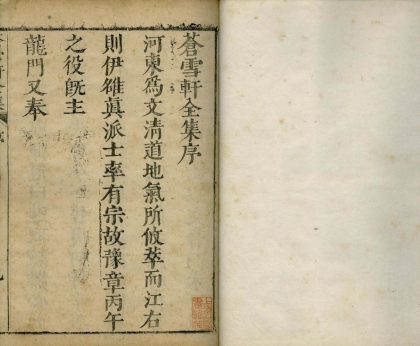 蒼雪軒全集序
河東為文清道地氣所攸萃而江右
則伊雒真派士率有宗故豫章丙午
之役既主
龍門又奉